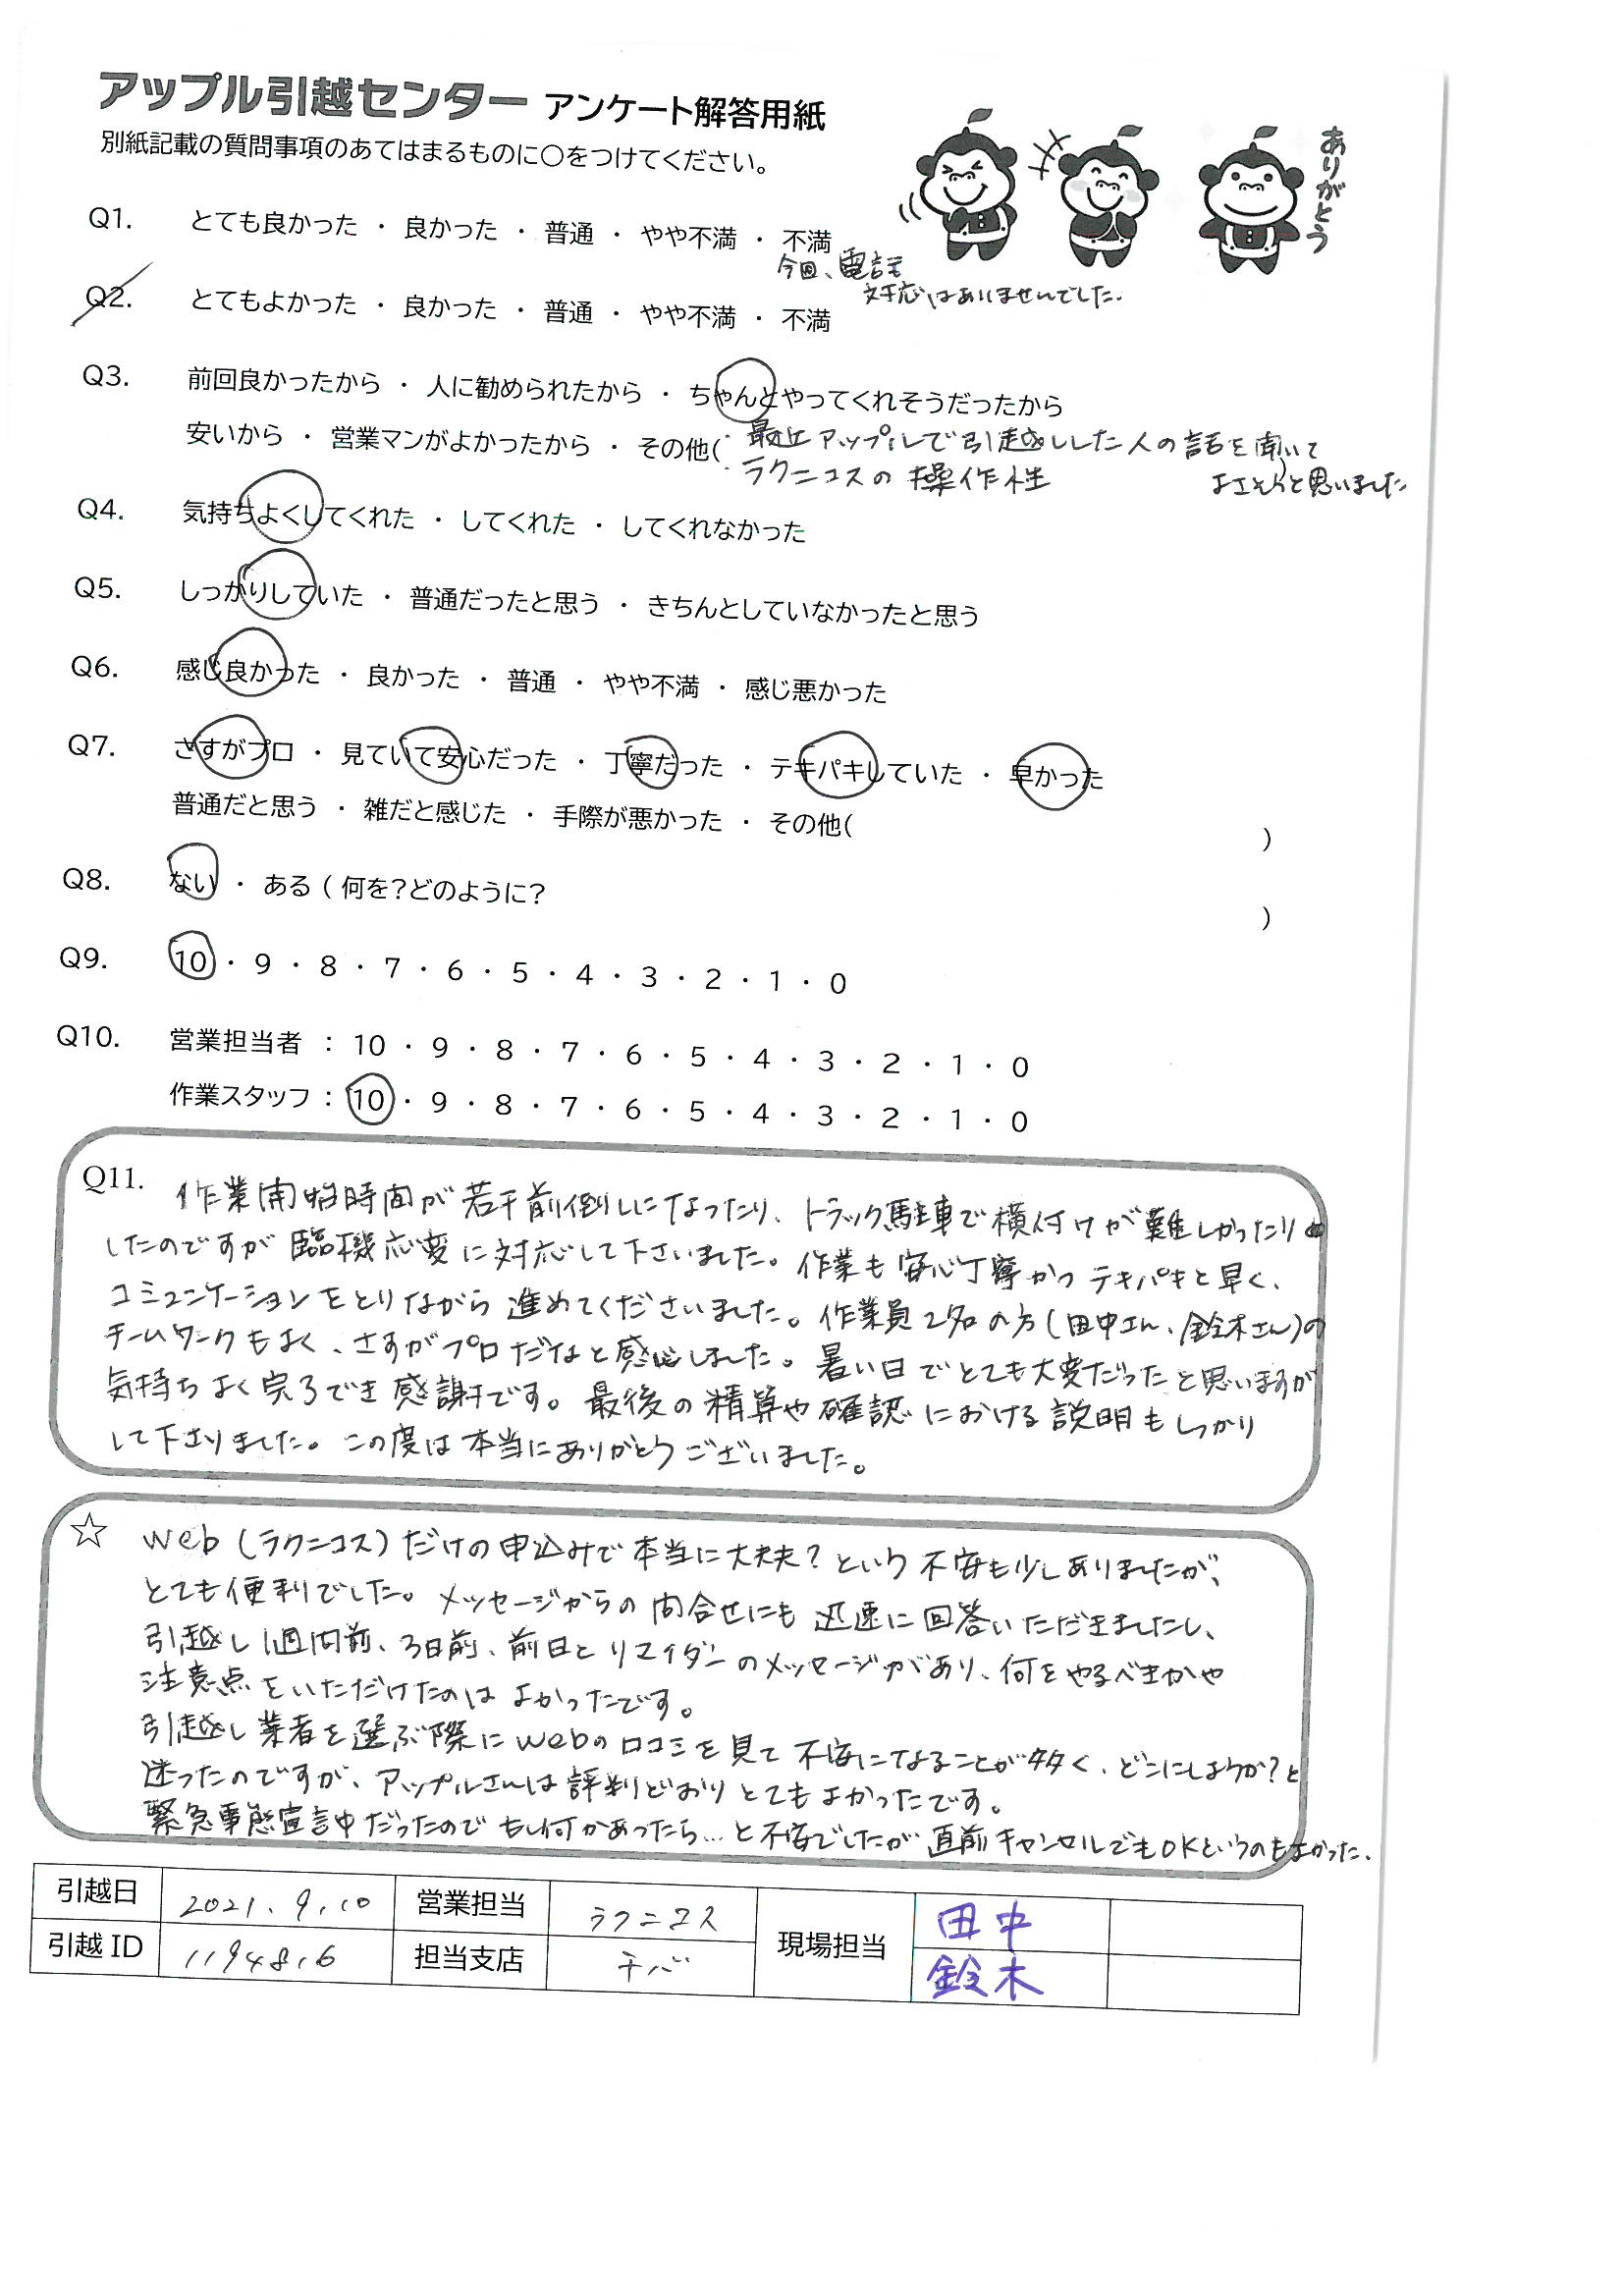 アップル引越センター アンケート解答用紙
別紙記載の質問事項のあてはまるものに○をつけてください。
ありがとう
Q1. とても良かった ・ 良かった ・ 普通 ・ やや不満 ・ 不満
今回、電話
対応はありませんでした.
Q2. とてもよかった ・ 良かった ・ 普通 ・ やや不満 ・ 不満
Q3. 前回良かったから ・ 人に勧められたから ・ ちゃんとやってくれそうだったから
安いから ・ 営業マンがよかったから ・ その他( ・最近アップルで引越しした人の話を聞いて
・ラクニコスの操作性 よさそうと思いました )
Q4. 気持ちよくしてくれた ・ してくれた ・ してくれなかった
Q5. しっかりしていた ・ 普通だったと思う ・ きちんとしていなかったと思う
Q6. 感じ良かった ・ 良かった ・ 普通 ・ やや不満 ・ 感じ悪かった
Q7. さすがプロ ・ 見ていて安心だった ・ 丁寧だった ・ テキパキしていた ・ 早かった
普通だと思う ・ 雑だと感じた ・ 手際が悪かった ・ その他( )
Q8. ない ・ ある ( 何を?どのように? )
Q9. 10 ・ 9 ・ 8 ・ 7 ・ 6 ・ 5 ・ 4 ・ 3 ・ 2 ・ 1 ・ 0
Q10. 営業担当者 : 10 ・ 9 ・ 8 ・ 7 ・ 6 ・ 5 ・ 4 ・ 3 ・ 2 ・ 1 ・ 0
作業スタッフ : 10 ・ 9 ・ 8 ・ 7 ・ 6 ・ 5 ・ 4 ・ 3 ・ 2 ・ 1 ・ 0
Q11. 作業開始時間が若干前倒しになったり、トラック駐車で横付けが難しかったり
したのですが臨機応変に対応して下さいました。作業も安心丁寧かつテキパキと早く、
コミュニケーションをとりながら進めてくださいました。作業員2名の方(田中さん、鈴木さん)の
チームワークもよく、さすがプロだなと感じました。暑い日でとても大変だったと思いますが
気持ちよく完了でき感謝です。最後の精算や確認における説明もしっかり
して下さりました。この度は本当にありがとうございました。
☆ web(ラクニコス)だけの申込みで本当に大丈夫?という不安も少しありましたが、
とても便利でした。メッセージからの問合せにも迅速に回答いただきましたし、
引越し1週間前、3日前、前日とリマイダーのメッセージがあり、何をやるべきかや
注意点をいただけたのはよかったです。
引越し業者を選ぶ際にwebの口コミを見て不安になることが多く、どこにしようか?と
迷ったのですが、アップルさんは評判どおりとてもよかったです。
緊急事態宣言中だったのでもし何かあったら…と不安でしたが直前キャンセルでもOKというのもよかった.
引越日 2021.9.10 営業担当 ラクニコス 現場担当 田中
引越ID 1194816 担当支店 チバ 鈴木